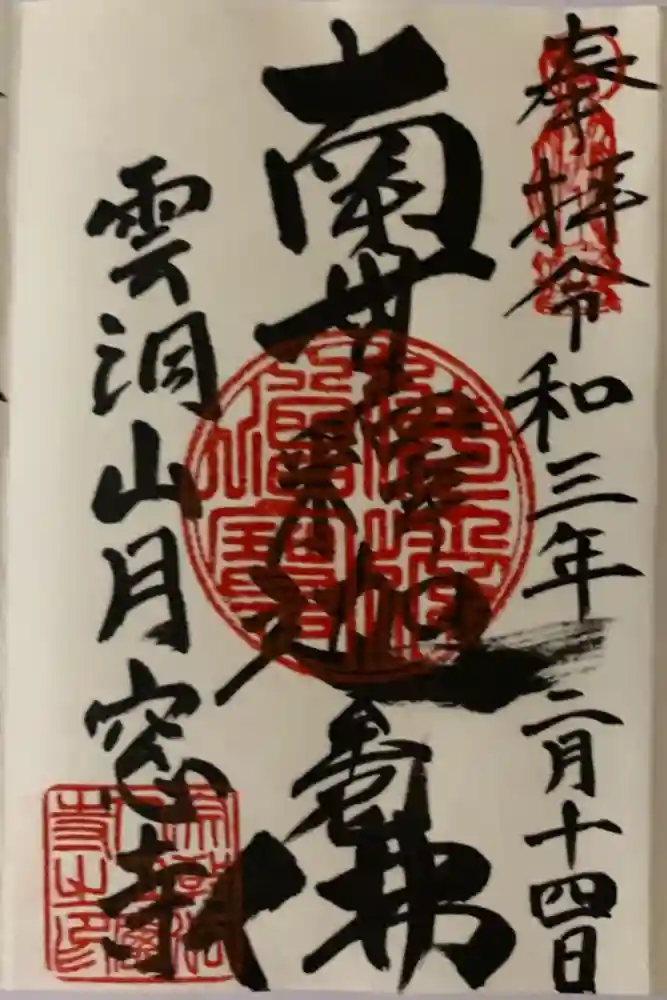 奉拝令和三年二月十四日
南無釋迦牟尼佛
雲洞山月窓寺
佛法僧寶